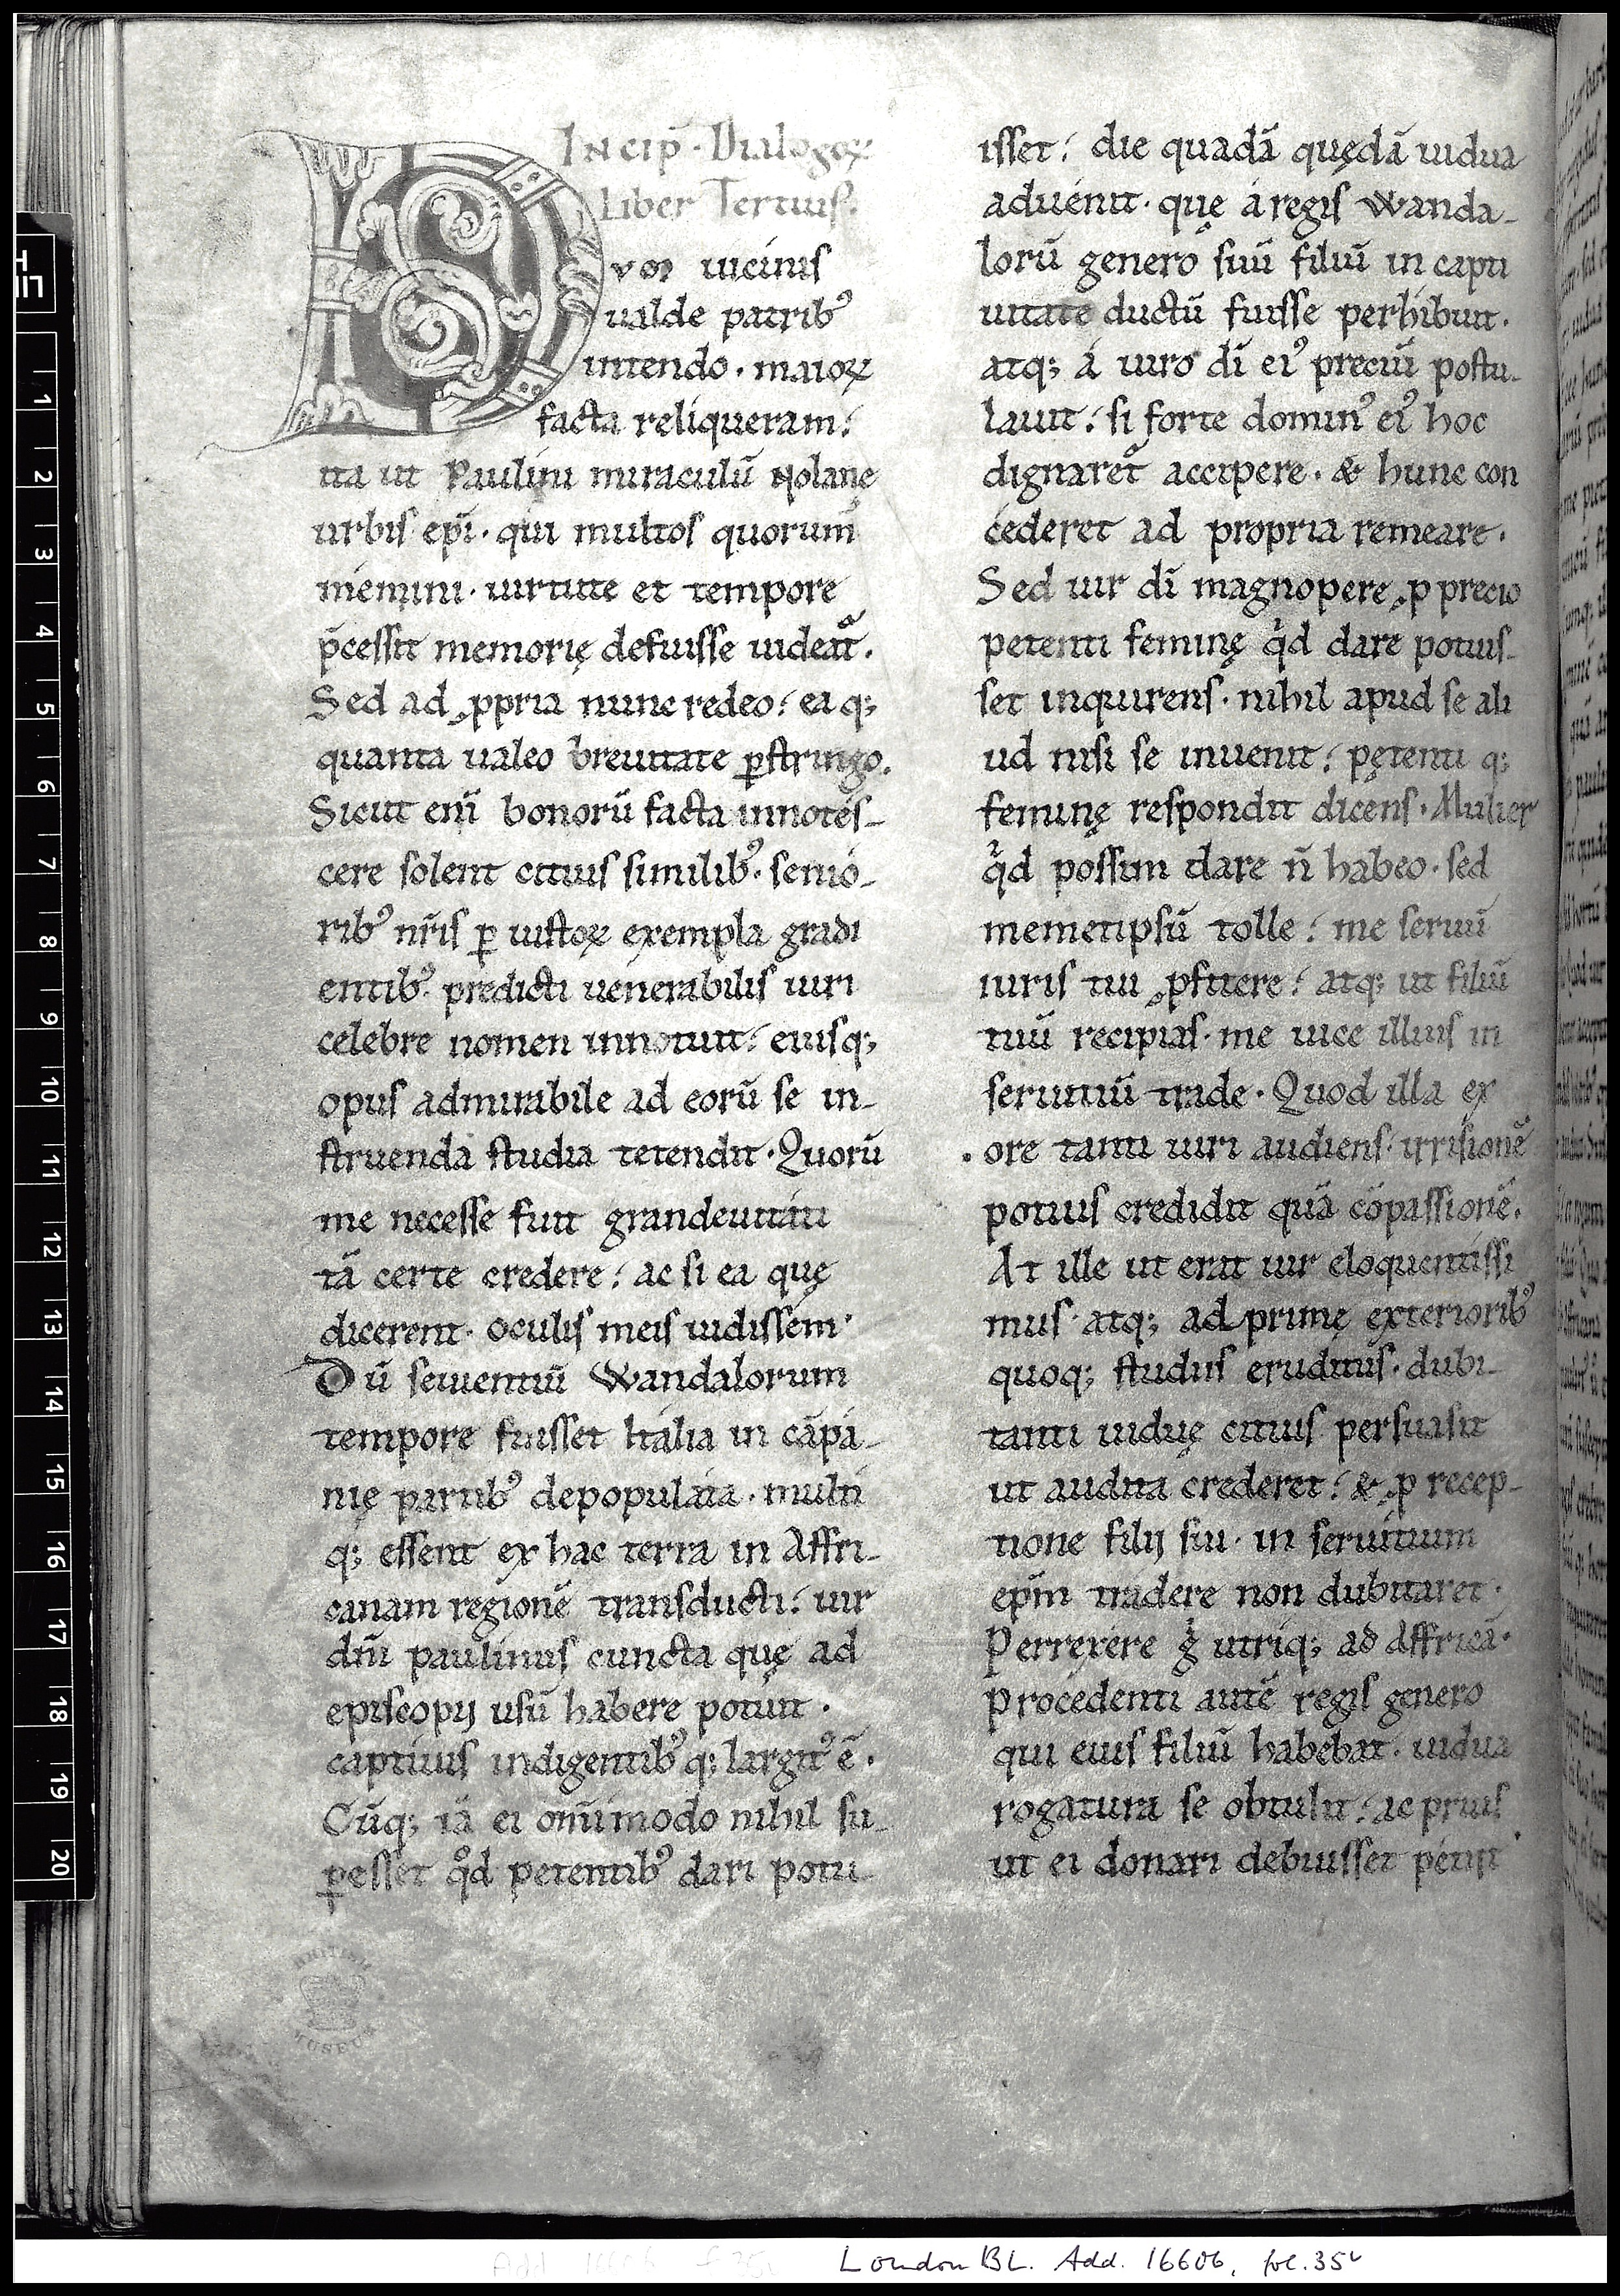 Incip̄ · Dialogoꝝ
Liber Tertius.
DVM uicinis
ualde patribꝰ
intendo · maioꝝ
facta reliqueram:
ita ut Paulini miraculū Nolanę
urbis ep̄i · qui multos quorum
memini · uirtute et tempore
p̄cessit memorię defuisse uideat᷑.
Sed ad ꝓpria nunc redeo: eaq;
quanta ualeo breuitate ꝑstringo.
Sicut eni̅ bonorū facta innotes-
cere solent citius similibꝰ · senio-
ribꝰ nr̄is ꝑ iustoꝝ exempla gradi
entibꝰ · predicti uenerabilis uiri
celebre nomen innotuit: eiusq;
opus admirabile ad eorū se in-
struenda studia tetendit · Quorū
me necesse fuit grandeuitati
tā certe credere: ac si ea quę
dicerent · oculis meis uidissem·
Dū seuientiū Wandalorum
tempore fuisset Italia in cāpa-
nię partibꝰ depopulata · multi
q; essent ex hac terra in Affri-
canam regionē transducti: uir
dn̄i paulinus cuncta quę ad
episcopij usū habere potuit ·
captiuis indigentibꝰq; largitꝰ ē ·
Cūq; iā ei om̄imodo nihil su-
ꝑesset qͦd petentibꝰ dari potu-
isset: die quadā quędā uidua
aduenit · quę a regis Wanda-
lorū genero suū filiū in capti
uitate ductū fuisse perhibuit ·
atq; a uiro dī eiꝰ preciū postu-
lauit: si forte dominꝰ eiꝰ hoc
dignaret᷑ accipere · & hunc con
cederet ad propria remeare ·
Sed uir dī magnopere ꝓ precio
petenti feminę qͥd dare potuis-
set inquirens · nihil apud se ali
ud nisi se inuenit: petenti q;
feminę respondit dicens · Mulier
qͥd possim dare n̄ habeo · sed
memetipsū tolle: me seruū
iuris tui ꝓfitere: atq; ut filiū
tuū recipias · me uice illius in
seruitiū trade · Quod illa ex
ore tanti uiri audiens · irrisionē
potius credidit quā cōpassionē.
At ille ut erat uir eloquentissi
mus · atq; ad prime exterioribꝰ
quoq; studiis eruditus · dubi-
tanti uiduę citius persuasit
ut audita crederet: & ꝓ recep-
tione filij sui · in seruitium
ep̄m tradere non dubitaret ·
Perrexere gͦ utriq; ad Affricā ·
Procedenti autē regis genero
qui eius filiū habebat · uidua
rogatura se obtulit: ac prius
ut ei donari debuisset petiit
BRITISH
MUSEUM
1
2
3
4
5
6
7
8
9
10
11
12
13
14
15
16
17
18
19
20
Add. 16606 f. 35v
London BL. Add. 16606, fol. 35v